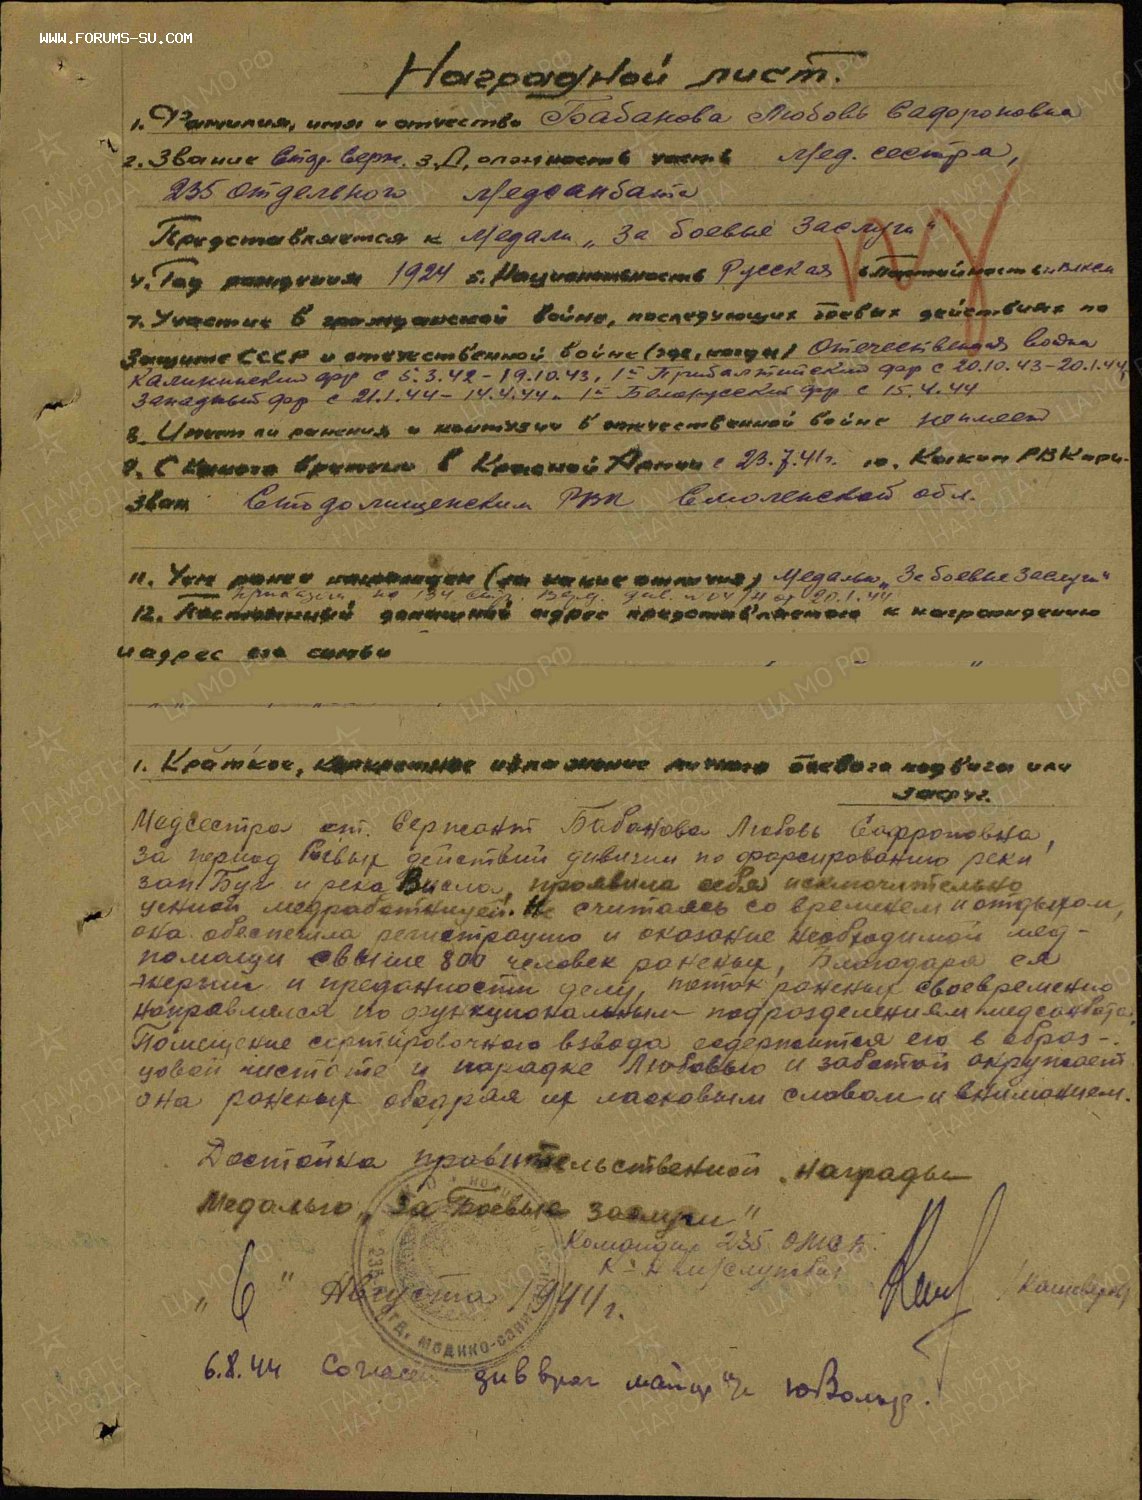 WWW.FORUMS-SU.COM
Наградной лист.
1. Фамилия, имя и отчество Бабанова Любовь Садороновна
2. Звание Стар. Серж. 3. Должность часть Мед. сестра,
235 отдельного Медсанбата
Представляется к Медали „За боевые Заслуги"
4. Год рождения 1924 5. Национальность Русская 6 Партийность
7. Участие в гражданской войне, последующих боевых действиях по
защите СССР и отечественной войне (где, когда) Отечественная война
Калининский фр с 5.3.42 - 19.10.43, 1й Прибалтийский фр с 20.10.43-20.1.44,
Западный фр с 21.1.44 - 14.4.44. 1й Белорусский фр с 15.4.44
8. Имеет ли ранения и контузии в отечественной войне не имеет
9. С какого времени в Красной Армии с 23.7.41г. 10. Каким РВК при-
зван Стодолищенским РВК Смоленской обл.
11. Чем ранее награжден (за какие отличия) Медалью „За боевые заслуги"
приказом по 134 стр. див. от 20.1.44
12. Постоянный домашний адрес представляемого к награждению
и адрес его семьи
1. Краткое, конкретное изложение личного боевого подвига или
заслуг.
Медсестра ст. Сержант Бабанова Любовь Сафроновна,
за период боевых действий дивизии по форсированию реки
зап Буг и река Висла, проявила себя исключительно
ценной медработницей. Не считаясь со временем и отдыхом,
она обеспечила регистрацию и оказание необходимой мед-
помощи свыше 800 человек раненых, Благодаря ея
энергии и преданности делу, поток раненых своевременно
направлялся по функциональным подразделениям медсанбата.
Помещение сортировочного взвода содержится ею в образ-
цовой чистоте и порядке Любовью и заботой окружает
она раненых ободряя их ласковым словом и вниманием.
Достойна правительственной награды
Медалью „За Боевые заслуги"
Командир 235 ОМСБ.
К-н м/службы
„6" Августа 1944г.
6.8.44 Согласен дивврач майор м/с